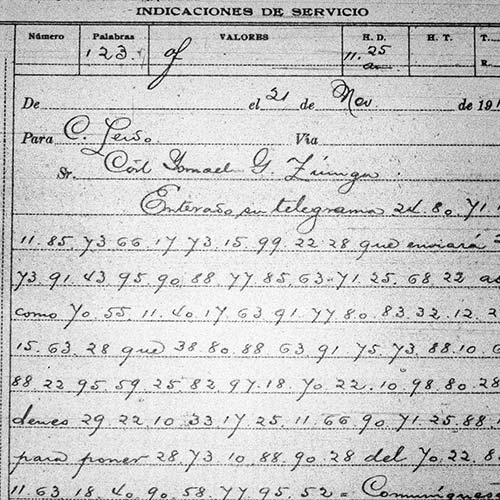 INDICACIONES DE SERVICIO
Número Palabras VALORES H. D. H. T. T.
123 of 11.25 R.
De el 21 de Nov de 191
Para C. Lerdo Via
Sr. Corl Ysmael G. Zúñiga.
Enterado su telegrama 24.80.71.1
11.85.73.66.17.73.15.99.22.28 que enviará
73.91.43.95.90.88.77.85.63-71.25.68.22
como 70.55.11.40.17.63.91.77.80.83.32.12.2
15.63.28 que 38.80.88 63.91 75.73.88.10.6
88.22.95.59.25.82.97.18.70.22.10.98.80.28
29.22.10.33.17.25.11.66.90.71.25.88.1
para poner 28.73.10.88.90.28 del 70.22.8
11.63.18.40.90.58.77.95.52 =